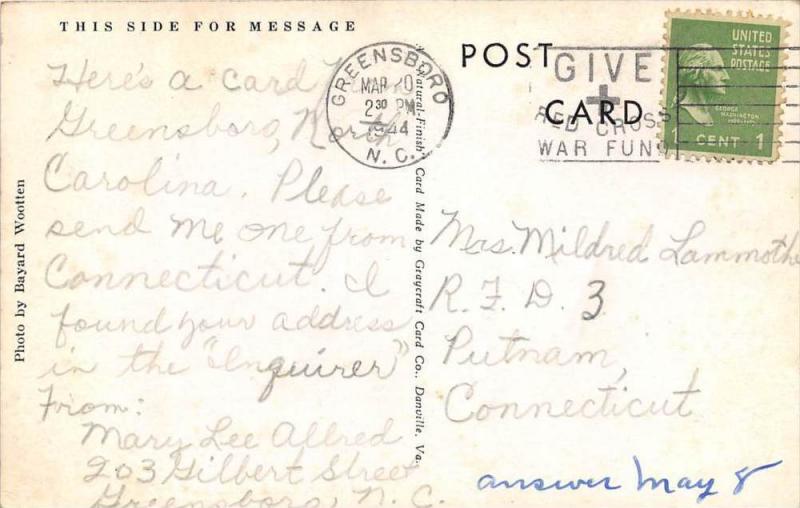 THIS SIDE FOR MESSAGE
Here's a card from
Greensboro, North
Carolina. Please
send me one from
Connecticut. I
found your address
in the "Inquirer"
From:
Mary Lee Allred
203 Gilbert Street
Greensboro, N. C.
Photo by Bayard Wootten
"Natural-Finish" Card Made by Graycraft Card Co., Danville, Va.
POST CARD
GREENSBORO
MAR 10
2 30 PM
1944
N. C.
GIVE
RED CROSS
WAR FUND
UNITED
STATES
POSTAGE
GEORGE
WASHINGTON
1 CENT 1
Mrs. Mildred Lammothe
R. F. D. 3
Putnam,
Connecticut
answer May 8